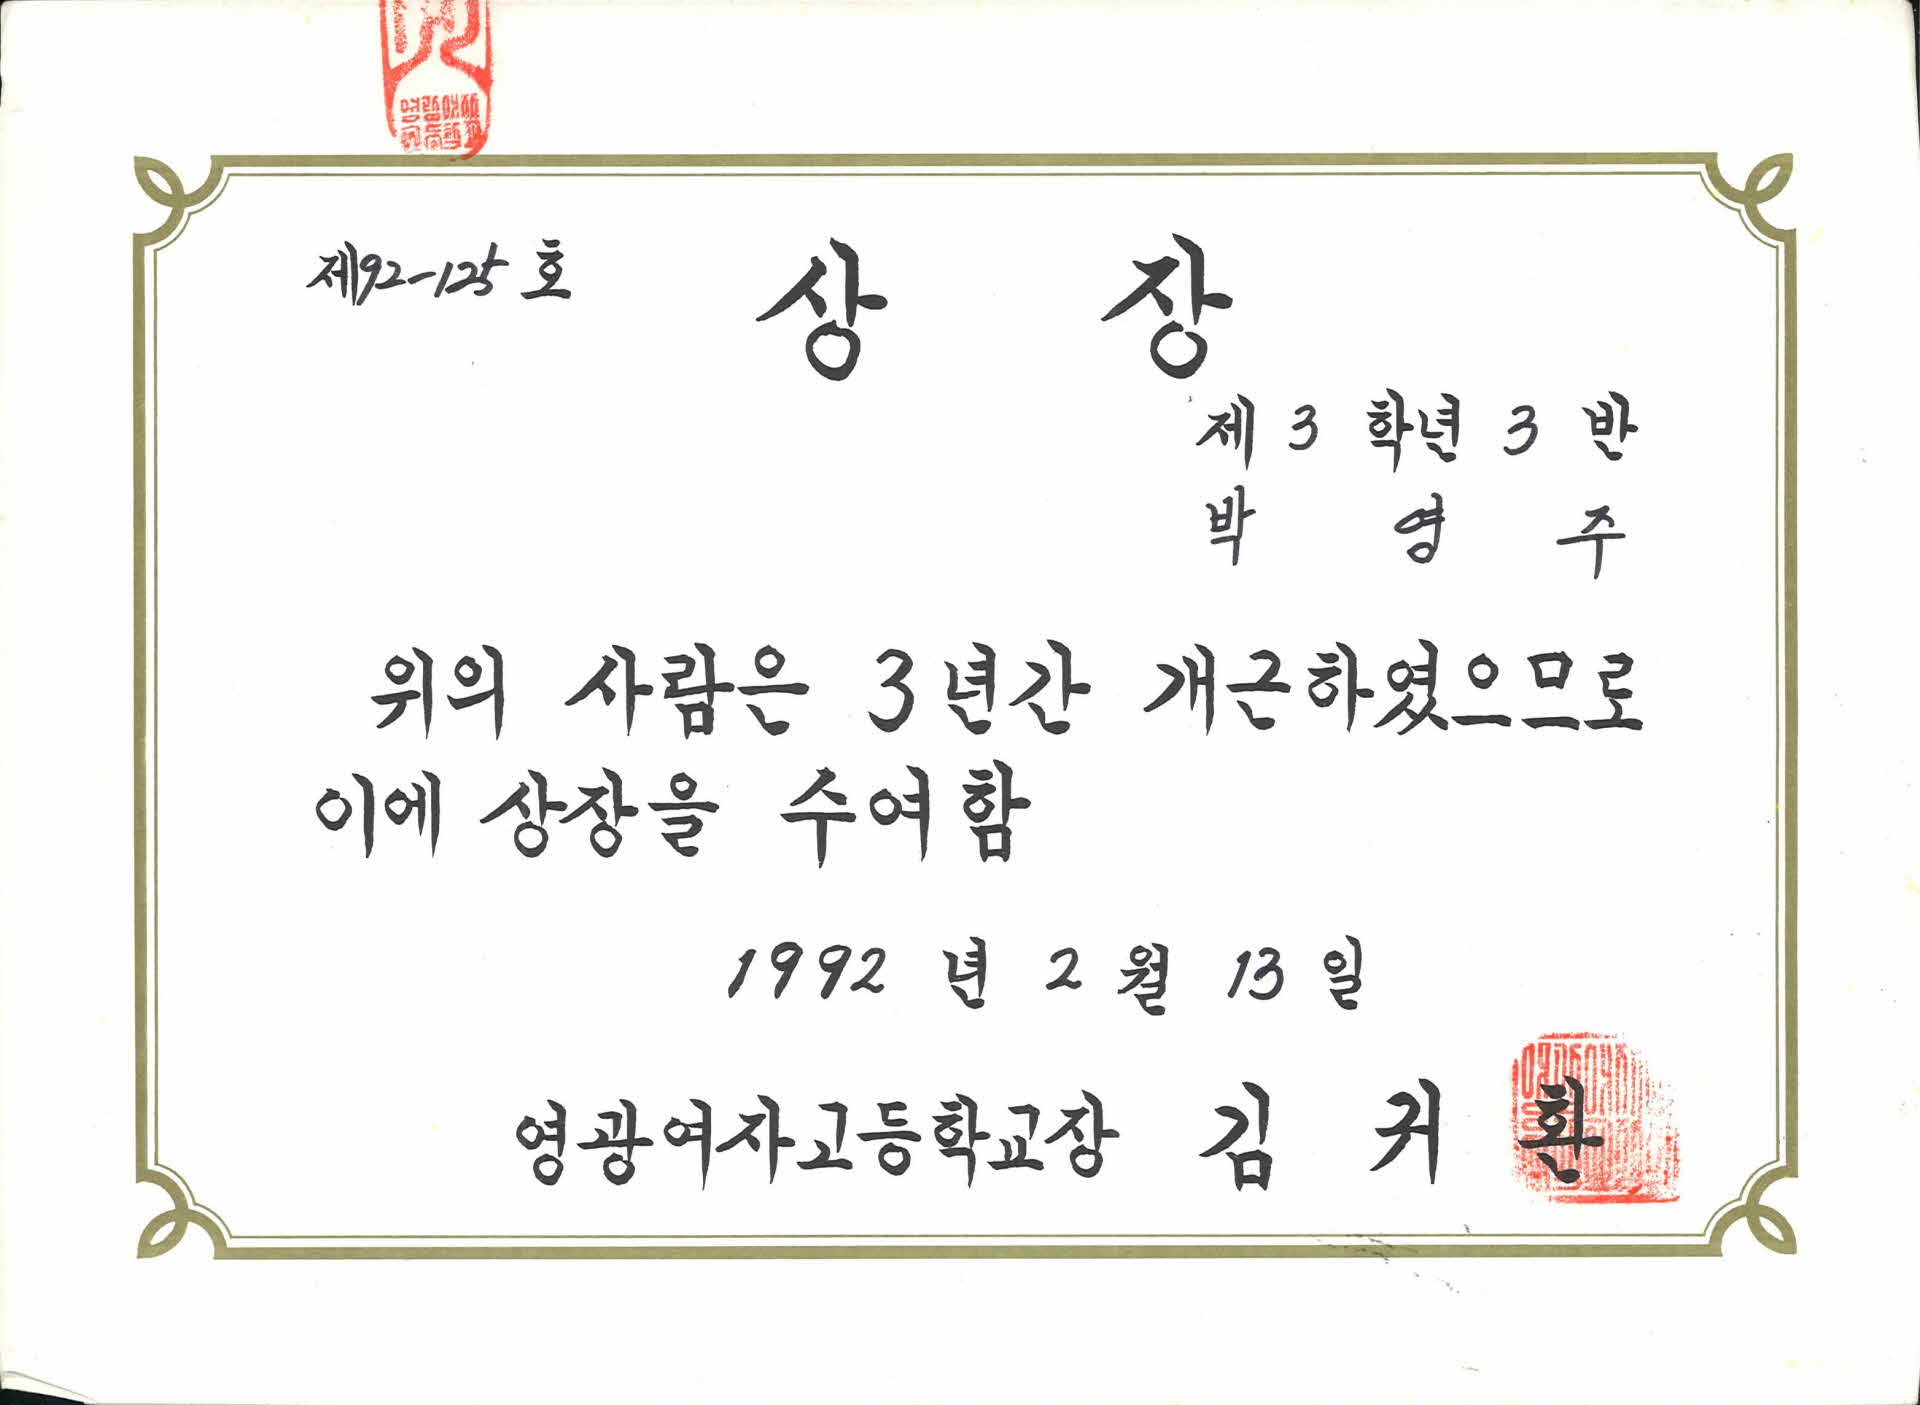 제92-125호
상 장
제 3 학년 3 반
박 영 주
위의 사람은 3년간 개근하였으므로
이에 상장을 수여함
1992 년 2 월 13 일
영광여자고등학교장 김 귀 환